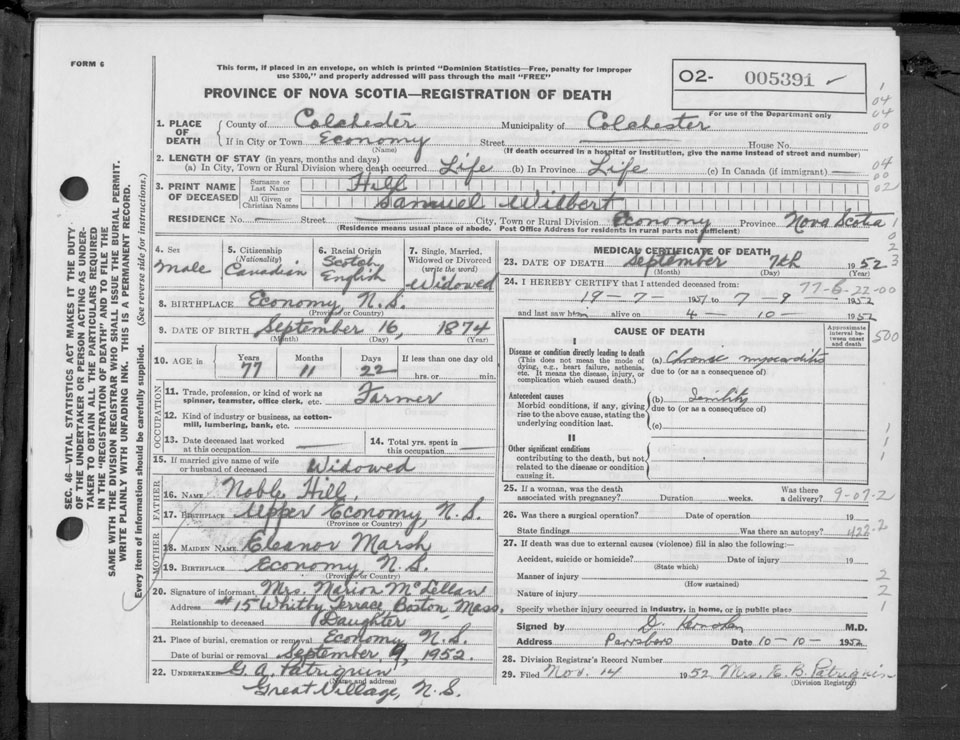 FORM 6
This form, if placed in an envelope, on which is printed "Dominion Statistics—Free, penalty for improper
use $300," and properly addressed will pass through the mail "FREE"
PROVINCE OF NOVA SCOTIA—REGISTRATION OF DEATH
O2- 005391 ✓
For use of the Department only
1. PLACE OF DEATH { County of Colchester Municipality of Colchester
If in City or Town Economy Street House No.
(Name) (If death occurred in a hospital or institution, give the name instead of street and number)
2. LENGTH OF STAY (in years, months and days)
(a) In City, Town or Rural Division where death occurred Life (b) In Province Life (c) In Canada (if immigrant) —
3. PRINT NAME OF DECEASED { Surname or Last Name Hill
All Given or Christian Names Samuel Wilbert
RESIDENCE No. — Street — City, Town or Rural Division Economy Province Nova Scotia
(Residence means usual place of abode. Post Office Address for residents in rural parts not sufficient)
4. Sex Male
5. Citizenship (Nationality) Canadian
6. Racial Origin Scotch English
7. Single, Married, Widowed or Divorced (write the word) Widowed
8. BIRTHPLACE Economy, N.S.
(Province or Country)
9. DATE OF BIRTH September 16, 1874
(Month) (Day) (Year)
10. AGE in Years 77 Months 11 Days 22 If less than one day old hrs. or min.
OCCUPATION
11. Trade, profession, or kind of work as spinner, teamster, office clerk, etc. Farmer
12. Kind of industry or business, as cotton-mill, lumbering, bank, etc. —
13. Date deceased last worked at this occupation —
14. Total yrs. spent in this occupation —
15. If married give name of wife or husband of deceased Widowed
FATHER
16. NAME Noble Hill.
17. BIRTHPLACE Upper Economy, N.S.
(Province or Country)
MOTHER
18. MAIDEN NAME Eleanor Marsh
19. BIRTHPLACE Economy N.S.
(Province or Country)
20. Signature of informant Mrs. Marion McLellan
Address #15 Whitby Terrace, Boston, Mass.
Relationship to deceased Daughter
21. Place of burial, cremation or removal Economy N.S.
Date of burial or removal September 9, 1952.
22. UNDERTAKER G. A. Patriquin
(Name and address)
Great Village, N.S.
MEDICAL CERTIFICATE OF DEATH
23. DATE OF DEATH September 7th 1952
(Month) (Day) (Year)
24. I HEREBY CERTIFY that I attended deceased from: 77-6-22-00
19-7- 1951 to 7-9- 1952
and last saw him alive on 4-10- 1952
CAUSE OF DEATH
Approximate interval between onset and death
I
Disease or condition directly leading to death
(This does not mean the mode of dying, e.g., heart failure, asthenia, etc. It means the disease, injury, or complication which caused death.)
(a) Chronic myocarditis
due to (or as a consequence of)
Antecedent causes
Morbid conditions, if any, giving rise to the above cause, stating the underlying condition last.
(b) Senility
due to (or as a consequence of)
(c)
II
Other significant conditions
contributing to the death, but not related to the disease or condition causing it.
25. If a woman, was the death associated with pregnancy? Duration weeks. Was there a delivery? 9-07-2
26. Was there a surgical operation? Date of operation 19
State findings Was there an autopsy? 422-2
27. If death was due to external causes (violence) fill in also the following:—
Accident, suicide or homicide? Date of injury 19
(State which)
Manner of injury
(How sustained)
Nature of injury
Specify whether injury occurred in industry, in home, or in public place
Signed by D. M.D.
Address Parrsboro Date 10-10- 1952
28. Division Registrar's Record Number
29. Filed Nov. 14 1952 Mrs. E. B. Patriquin
(Division Registrar)
SEC. 46—VITAL STATISTICS ACT MAKES IT THE DUTY
OF THE UNDERTAKER OR PERSON ACTING AS UNDER-
TAKER TO OBTAIN ALL THE PARTICULARS REQUIRED
IN THE "REGISTRATION OF DEATH" AND TO FILE THE
SAME WITH THE DIVISION REGISTRAR WHO SHALL ISSUE THE BURIAL PERMIT.
WRITE PLAINLY WITH UNFADING INK. THIS IS A PERMANENT RECORD.
Every item of information should be carefully supplied. (See reverse side for instructions.)
1
04
04
00
04
00
02
1
0
2
3
500
1
1
1
2
2
1